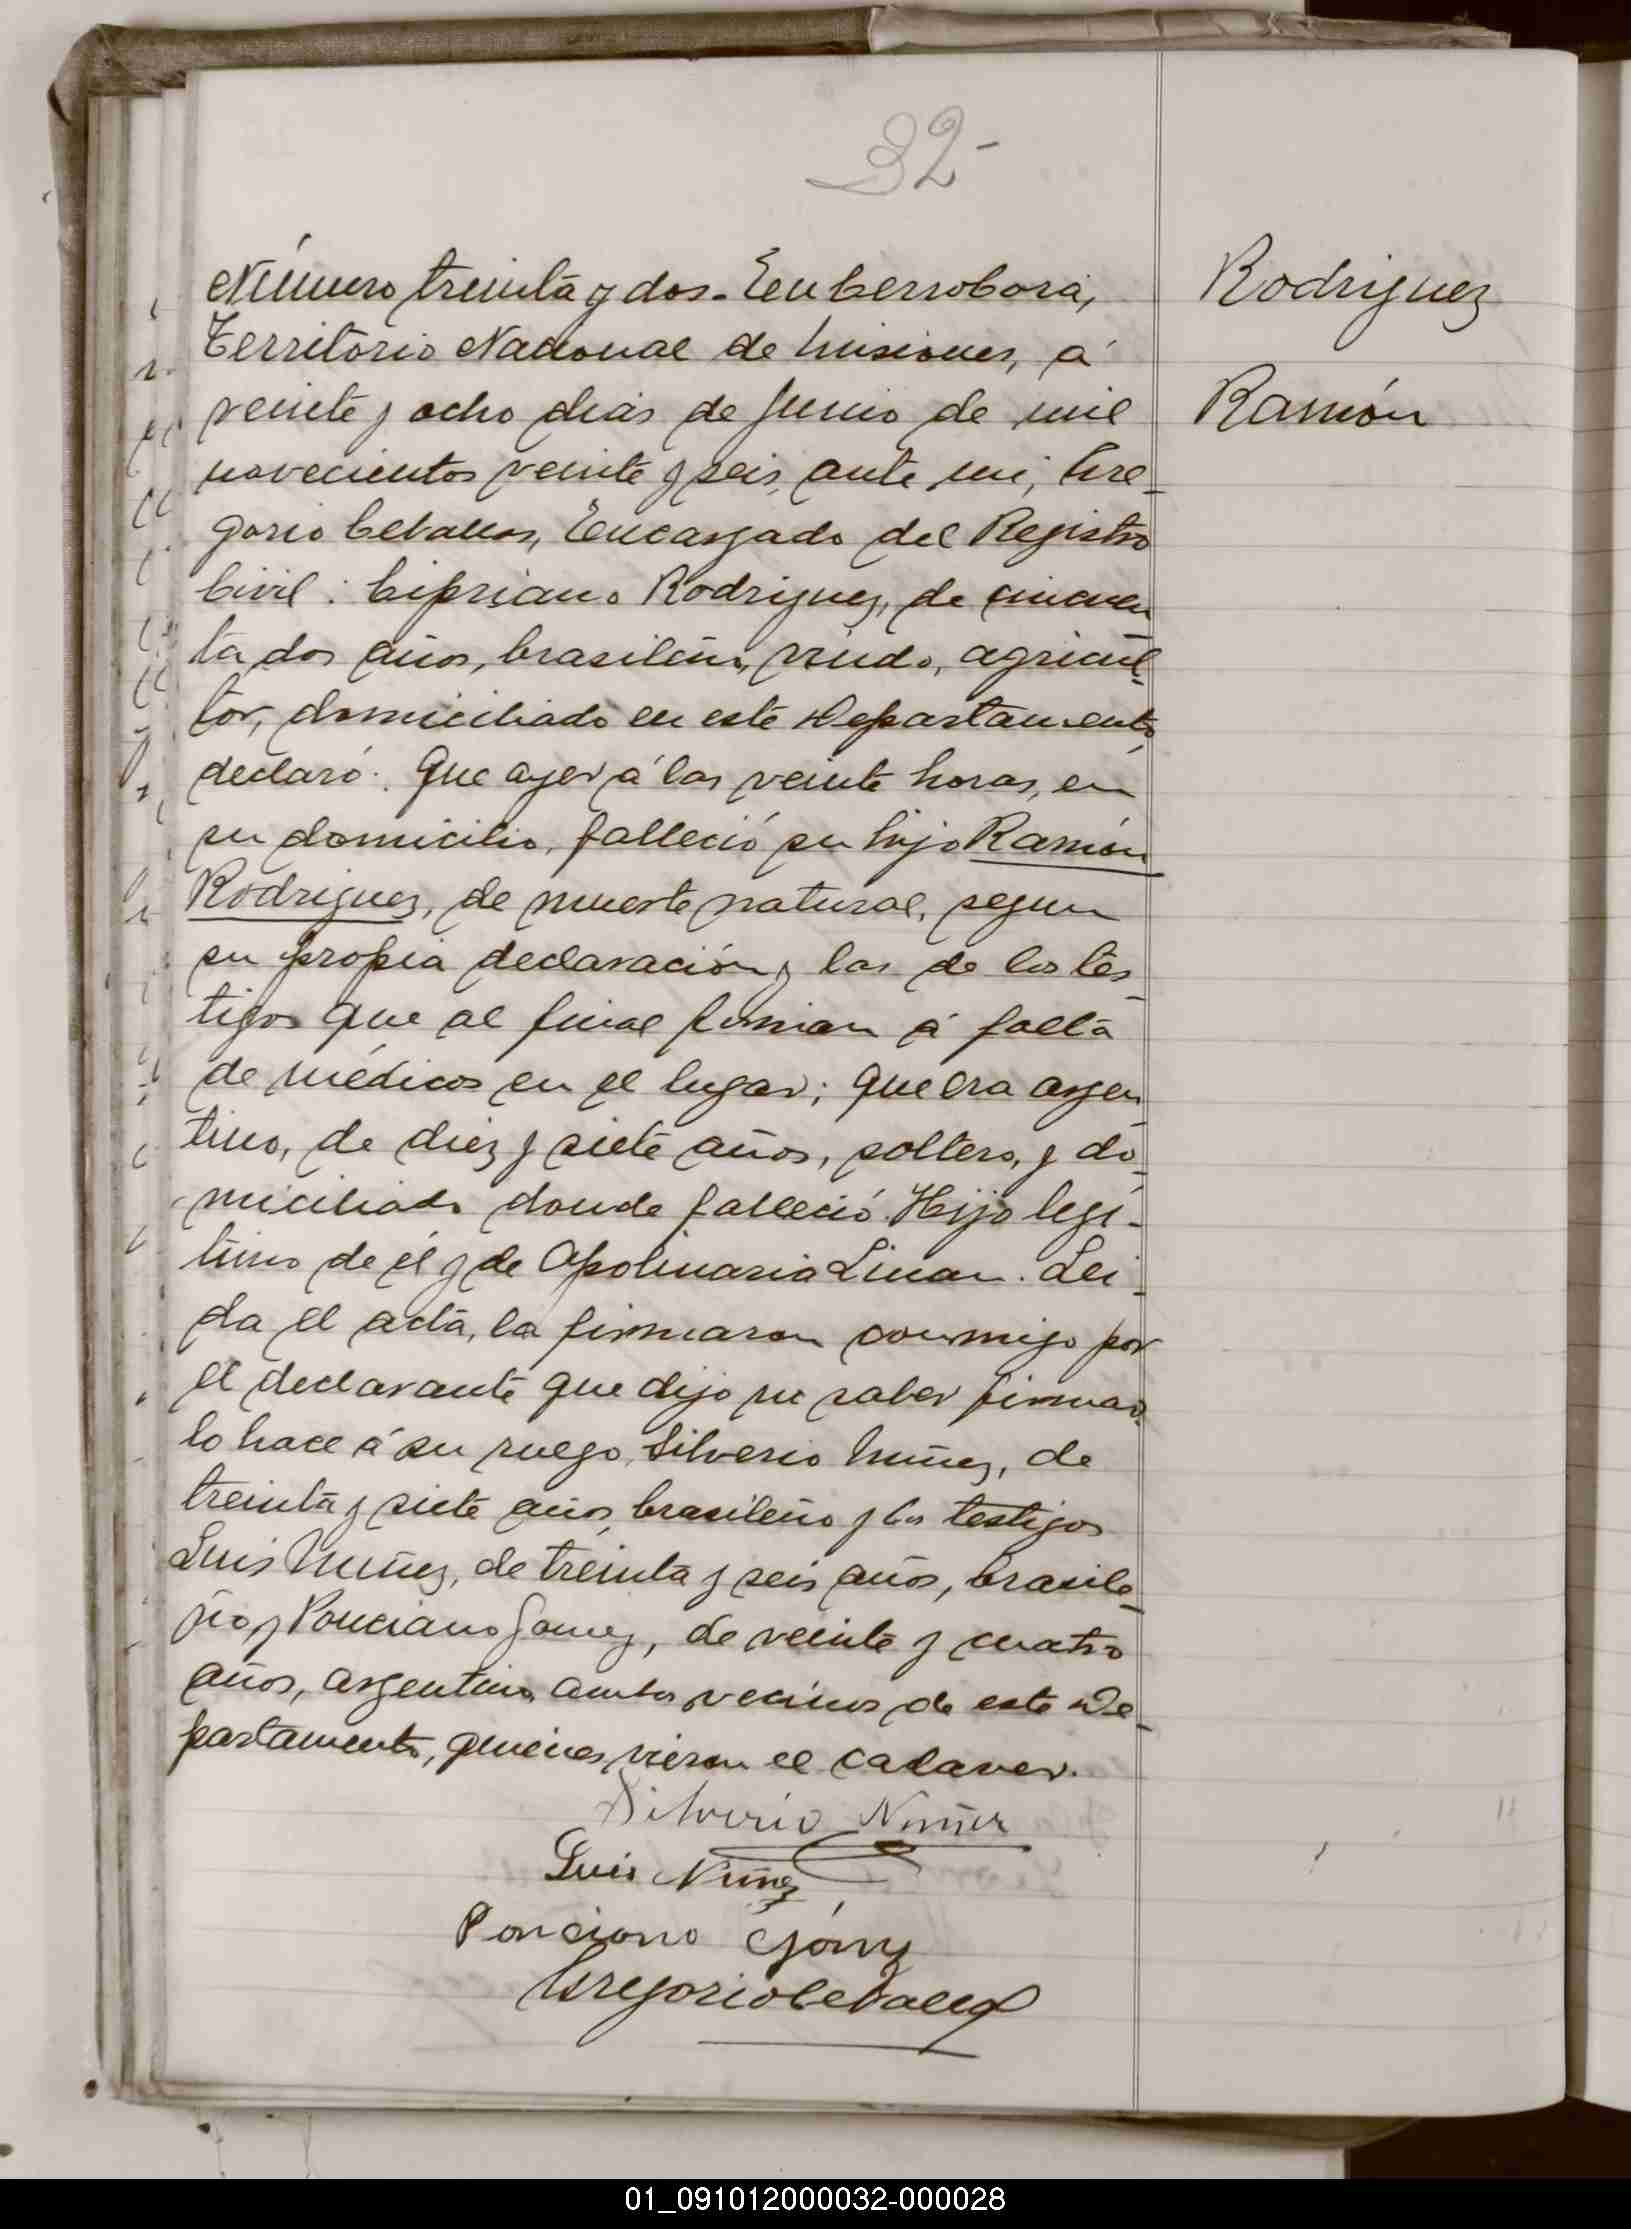 32-
Número treinta y dos. En Cerro Corá,
Territorio Nacional de Misiones, á
veinte y ocho dias de Junio de mil
novecientos veinte y seis, ante mi, Gre-
gorio Ceballos, Encargado del Registro
Civil: Cipriano Rodriguez, de cincuen
ta dos años, brasileño, viudo, agricul-
tor, domiciliado en este Departamento,
declaró: Que ayer á las veinte horas, en
su domicilio, falleció su hijo Ramón
Rodriguez, de muerte natural, segun
su propia declaración y las de los tes-
tigos que al final firman á falta
de médicos en el lugar; que era argen
tino, de diez y siete años, soltero, y do-
miciliado donde falleció. Hijo legi-
timo de él y de Apolinaria Liman. Lei-
da el acta, la firmaron conmigo por
el declarante que dijo no saber firmar
lo hace á su ruego, Silverio Nuñez, de
treinta y siete años, brasileño y los testigos
Luis Nuñez, de treinta y seis años, brasile-
ño y Ponciano Gomez, de veinte y cuatro
años, argentino, ambos vecinos de este De-
partamento, quienes vieron el cadaver.
Silverio Nuñez
Luis Nuñez
Ponciano Gómez
Gregorio Ceballos
Rodriguez
Ramón
01_091012000032-000028